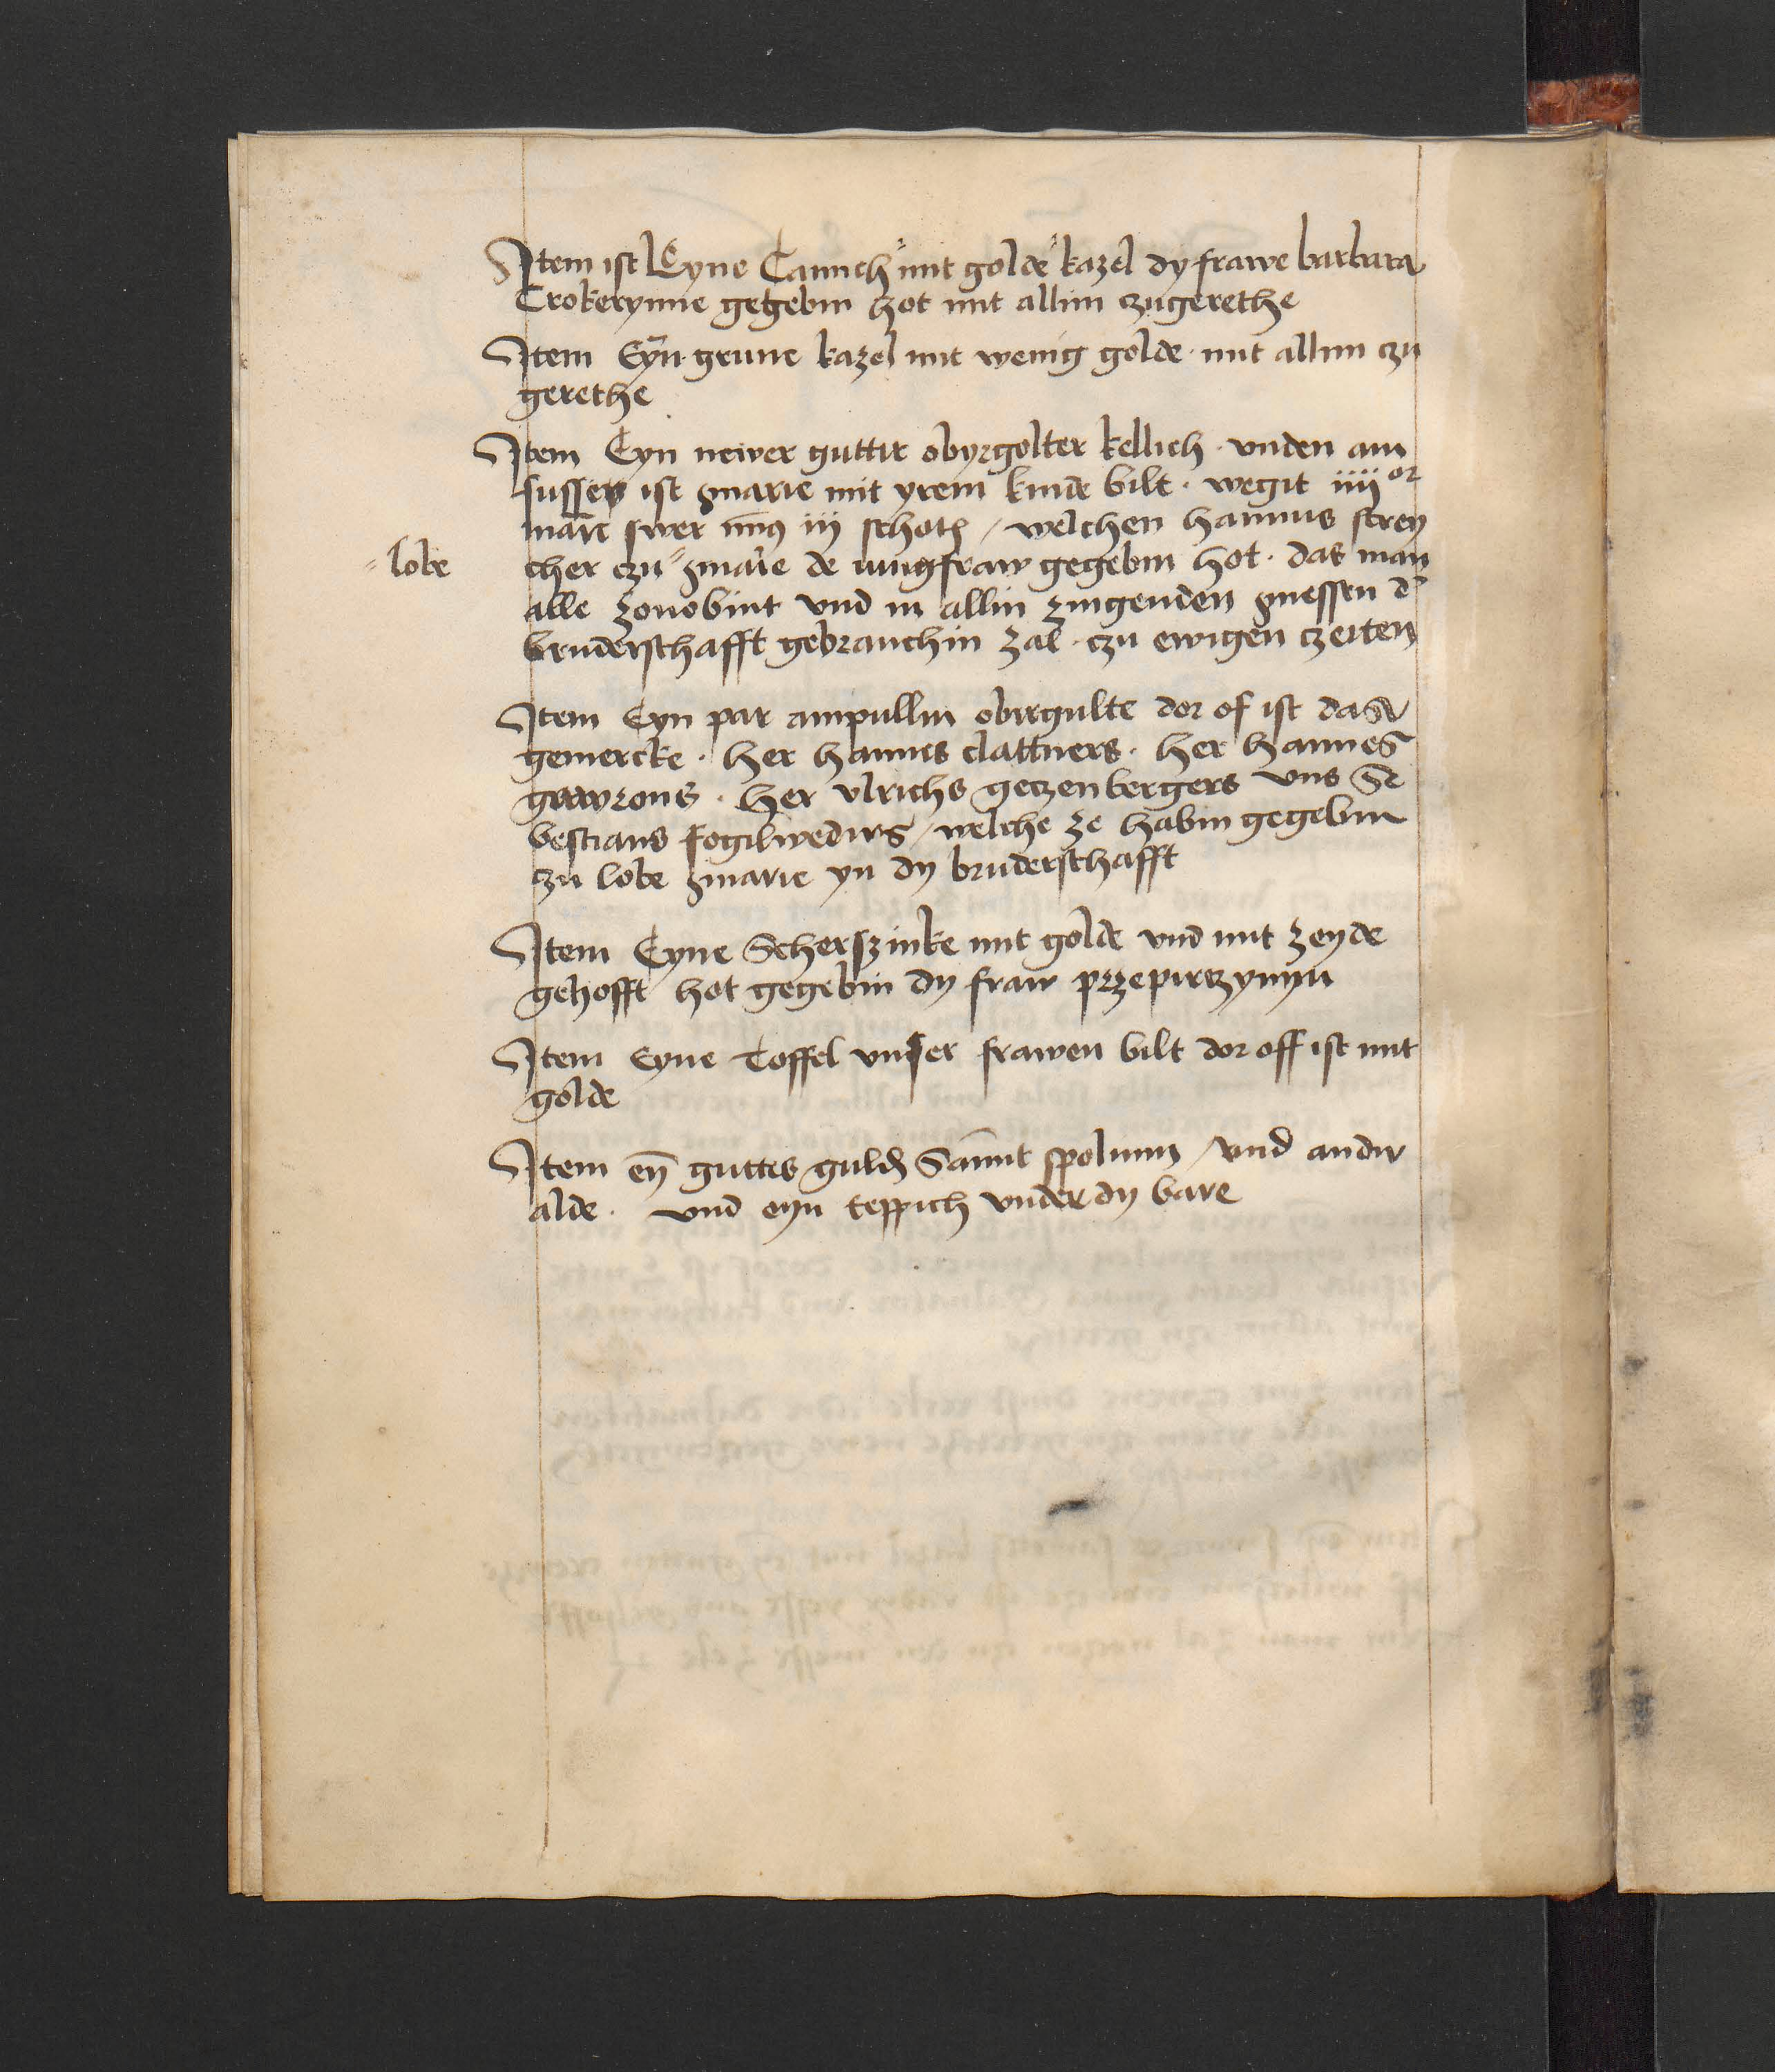 Item ist Eyne Tannch mit golde kazel dy frawe barbara
Crokerynne gegebin hot mit allim czugerethe
Item Eyn grune kazel mit wenig golde mit allim czu
gerethe
Item Eyn newer guttir obyrgolter kellich · vnden am
fusse ist marie mit yrem kinde bilt · wegit iiii or
marc swer iii schoth / welchen hannus strey
lobe
cher czu marie de iungfraw gegebin hot · das man
alle zonobint vnd in allin zingenden messen d'
bruderschafft gebrauchin zal · czu ewigen czeiten
Item Eyn par ampullin obirgulte dor of ist das
gemercke · her hannus clattners · her hannes
gawrons · her vlrichs geczenbergers vns Se
bestians fogilwedirs / welche ze habin gegebin
czu lobe marie yn dy bruderschafft
Item Eyne Scherszinke mit golde vnd mit zeyde
gehofft hot gegebin dy fraw przepirczynyn
Item Eyne Toffel vnser frawen bilt dor off ist mit
golde
Item eyn guttes guld Samit spolium / vnd andir
alde · vnd eyn teppich vnder dy bare